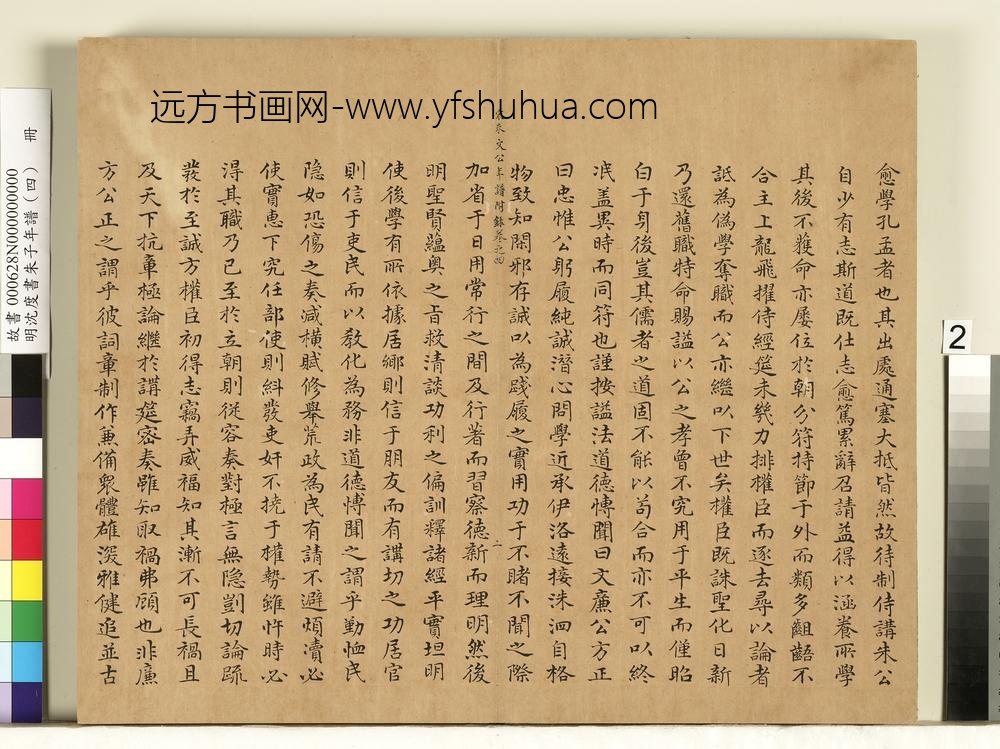 远方书画网-www.yfshuhua.com
愈學孔孟者也其出處通塞大抵皆然故待制侍講朱公
自少有志斯道既仕志愈篤累辭召請益得以涵養所學
其後不獲命亦屢位於朝分符持節于外而類多齟齬不
合主上龍飛擢侍經筵未幾力排權臣而逐去尋以論者
詆為偽學奪職而公亦繼以下世矣權臣既誅聖化日新
乃還舊職特命賜謚以公之孝曾不究用于平生而僅昭
白于身後豈其儒者之道固不能以苟合而亦不可以終
泯蓋異時而同符也謹按謚法道德博聞曰文廉公方正
曰忠惟公躬履純誠潛心問學近承伊洛遠接洙泗自格
朱文公年譜附錄卷之四
二
物致知閑邪存誠以為踐履之實用功于不睹不聞之際
加省于日用常行之間及行著而習察德新而理明然後
明聖賢蘊奧之旨救清談功利之偏訓釋諸經平實坦明
使後學有所依據居鄉則信于朋友而有講切之功居官
則信于吏民而以教化為務非道德博聞之謂乎勤恤民
隐如恐傷之奏減橫賦修舉荒政為民有請不避煩瀆必
使實惠下究任部使則糾發吏奸不撓于權勢雖忤時必
得其職乃已至於立朝則從容奏對極言無隐剴切論疏
發於至誠方權臣初得志竊弄威福知其漸不可長禍且
及天下抗章極論繼於講筵密奏雖知取禍弗顧也非廉
方公正之謂乎彼詞章制作兼備眾體雄深雅健追並古
故書 000628N000000000
明沈度書朱子年譜(四) 冊
2